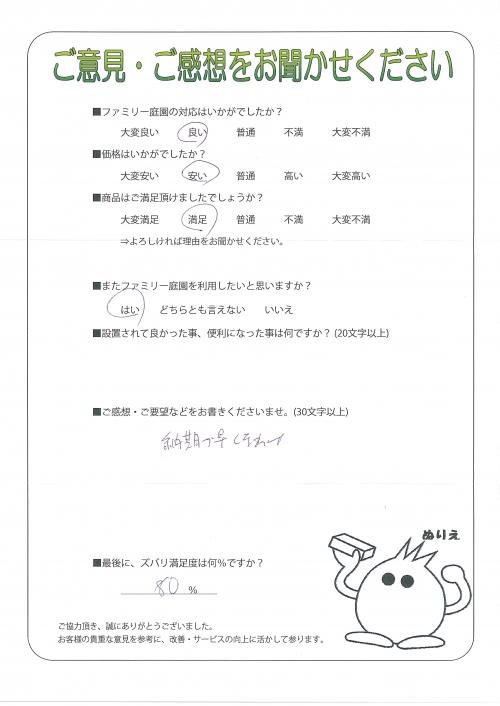 ご意見・ご感想をお聞かせください
■ファミリー庭園の対応はいかがでしたか？
大変良い 良い 普通 不満 大変不満
■価格はいかがでしたか？
大変安い 安い 普通 高い 大変高い
■商品はご満足頂けましたでしょうか？
大変満足 満足 普通 不満 大変不満
⇒よろしければ理由をお聞かせください。
■またファミリー庭園を利用したいと思いますか？
はい どちらとも言えない いいえ
■設置されて良かった事、便利になった事は何ですか？(20文字以上)
■ご感想・ご要望などをお書きくださいませ。(30文字以上)
納期
ぬりえ
■最後に、ズバリ満足度は何％ですか？
80 %
ご協力頂き、誠にありがとうございました。
お客様の貴重な意見を参考に、改善・サービスの向上に活かして参ります。